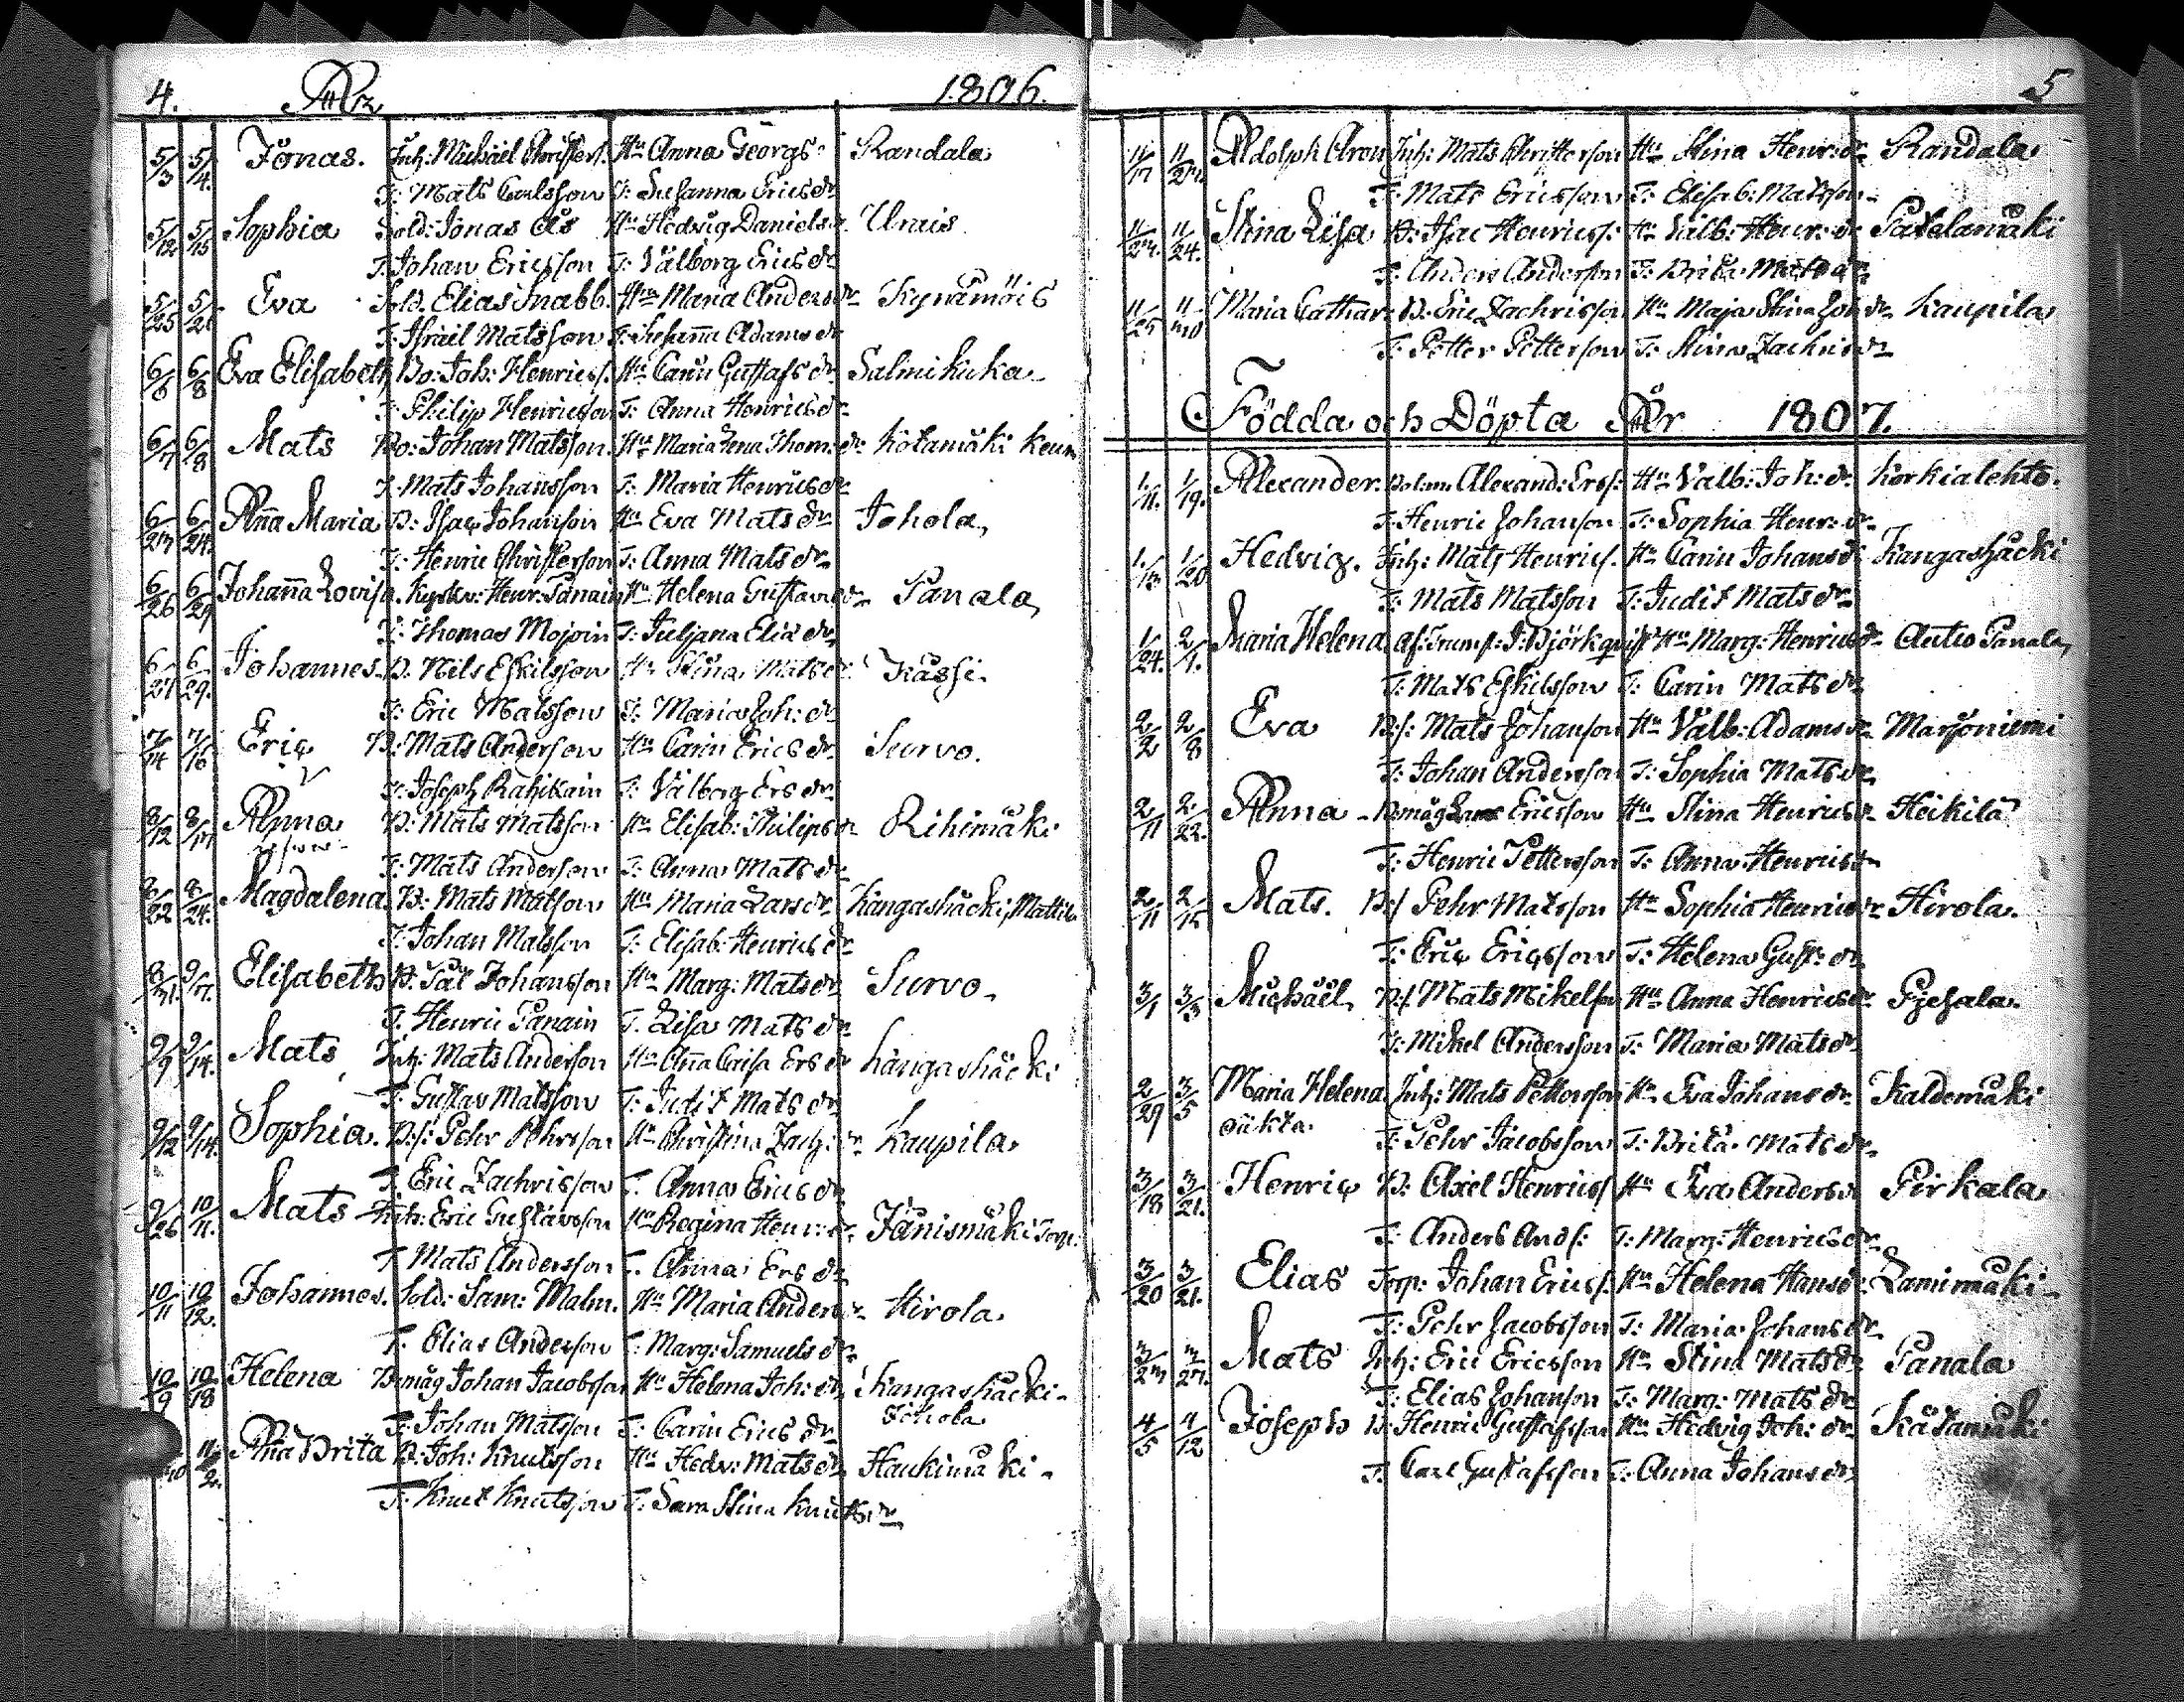 4. År 1806.
5/3 5/4. Jonas. Inh: Michaël Christers. Hu Anna Georgs Randala
T: Mats Carlsson T: Susanna Ericsdr
5/12 5/15 Sophia Sold: Jonas Ås Hu Hedvig Danielsdr Unnis
T. Johan Ericsson T: Välborg Ericsdr
5/25 5/26 Eva Sold. Elias Snabb. Hu Maria Andersdr Kynämöis
T: Israil Matsson T: Susanna Adamsdr
6/6 6/8 Eva Elisabeth Bo: Joh: Henricss. Hu Carin Gustafsdr Salmikuka
T: Philip Henricsson T: Anna Henricsdr
6/7 6/8 Mats Bo: Johan Matsson. Hu Maria Lena Thom:dr Kotamäki
T. Mats Johansson T: Maria Henricsdr
6/23 6/24. Anna Maria B: Isac Johanson Hu Eva Matsdr Johola
T: Henric Christerson T: Anna Matsdr
6/26 6/29 Johanna Lovisa. Kyrkv: Henr: Panain Hu Helena Gustavsdr Panala
T: Thomas Mojoin T: Juljana Eliædr
6/27 6/29. Johannes. B. Nils Eskilsson Hu Stina Matsdr Kässi.
T: Eric Matsson T: Maria Joh:dr
7/14 7/16 Eric B: Mats Anderson Hu Carin Ericsdr Survo.
T: Joseph Rahikain T: Välborg Ersdr
8/12 8/17 Anna B: Mats Matsson Hu Elisab: Philipsdr Rihimäki
T: Mats Anderson T: Anna Matsdr
8/22 8/24. Magdalena B: Mats Matsson Hu Maria Larsdr Kangashäcki, Mattila
T: Johan Matsson T: Elisab: Henricsdr
8/31. 9/7. Elisabeth B: Pål Johansson Hu Marg: Matsdr Survo
T. Henric Panain T. Lisa Matsdr
9/9 9/14. Mats Inh: Mats Anderson Hu Anna Caisa Ersdr Kangashäcki
T: Gustav Matsson T: Judit Matsdr
9/12 9/14. Sophia. B:s: Pehr Pehrsson Hu Christina Zach:dr Kaupila
T Eric Zachrisson T. Anna Ericsdr
9/26 10/11. Mats Inh: Eric Gustavsson Hu Regina Henr:dr Jänismäki Torp:
T Mats Andersson T. Anna Ersdr
10/11 10/12. Johannes. Sold: Sam: Malm. Hu Maria Andersdr Hirola
T. Elias Anderson T: Marg: Samuelsdr
10/9 10/18 Helena B.måg Johan Jacobsson Hu Helena Joh:dr Kangashäcki
Johola
T: Johan Matsson T: Carin Ericsdr
11/2. Anna Brita B: Joh: Knutsson Hu Hedv: Matsdr Haukimäki
T: Knut Knutsson T: Sara Stina Knutsdr
5
11/17 11/23 Adolph Aron Inh: Mats Christerson Hu Stina Henr:dr Randala
T: Mats Ericsson T: Elisab: Matsson
11/23. 11/24. Stina Lisa B: Isac Henricss: Hu Välb: Henr:dr Patalamäki
T: Anders Anderson T: Brita Matsdr
11/25 11/30 Maria Cathar: B: Eric Zachrisson Hu Maja Stina Johdr Kaupila
T: Petter Petterson T: Stina Zachrisdr
Födda och Döpta År 1807.
1/11. 1/19. Alexander. Alexand: Erss: Hu Valb: Joh:dr Korkialehto.
T: Henric Johanson T: Sophia Henr:dr
1/13 1/20 Hedvig. Inh: Mats Henrics. Hu Carin Johansdr Kangashäcki
T: Mats Matsson T: Judit Matsdr
1/24. 2/1. Maria Helena af: Trump: J: Björkquist Hu Marg: Henricsdr Autio Panala
T: Mats Eskilsson T: Carin Matsdr
2/2 2/8 Eva B:s: Mats Johanson Hu Välb: Adamsdr Marjoniemi
T: Johan Anderson T: Sophia Matsdr
2/11 2/22. Anna B.måg Lars Ericsson Hu Stina Henricsdr Heikilä
T: Henric Petterson T: Anna Henricsdr
2/11 2/15 Mats. B:s Pehr Matsson Hu Sophia Henricsdr Hirola.
T: Eric Ericsson T: Helena Gust:dr
3/1 3/3 Michaël B:s. Mats Mikelson Hu Anna Henricsdr Pjesala.
T: Mikel Andersson T: Maria Matsdr
2/29 3/5 Maria Helena Inh: Mats Petterson Hu Eva Johansdr Kaldemäki
oäkta. T: Pehr Jacobsson T: Brita Matsdr
3/18 3/21. Henric B: Axel Henricss Hu Eva Andersdr Pirkala
T: Anders Ands: T: Marg: Henricsdr
3/20 3/21. Elias Torp: Johan Ericss: Hu Helena Hansdr Lamimäki
T: Pehr Jacobsson T: Maria Johansdr
3/23 3/27. Mats Inh: Eric Ericsson Hu Stina Matsdr Panala
T: Elias Johanson T: Marg: Matsdr
4/5 4/12 Joseph B: Henric Gustafsson Hu Hedvig Joh:dr Kätämäki
T: Carl Gustafsson T: Anna Johansdr